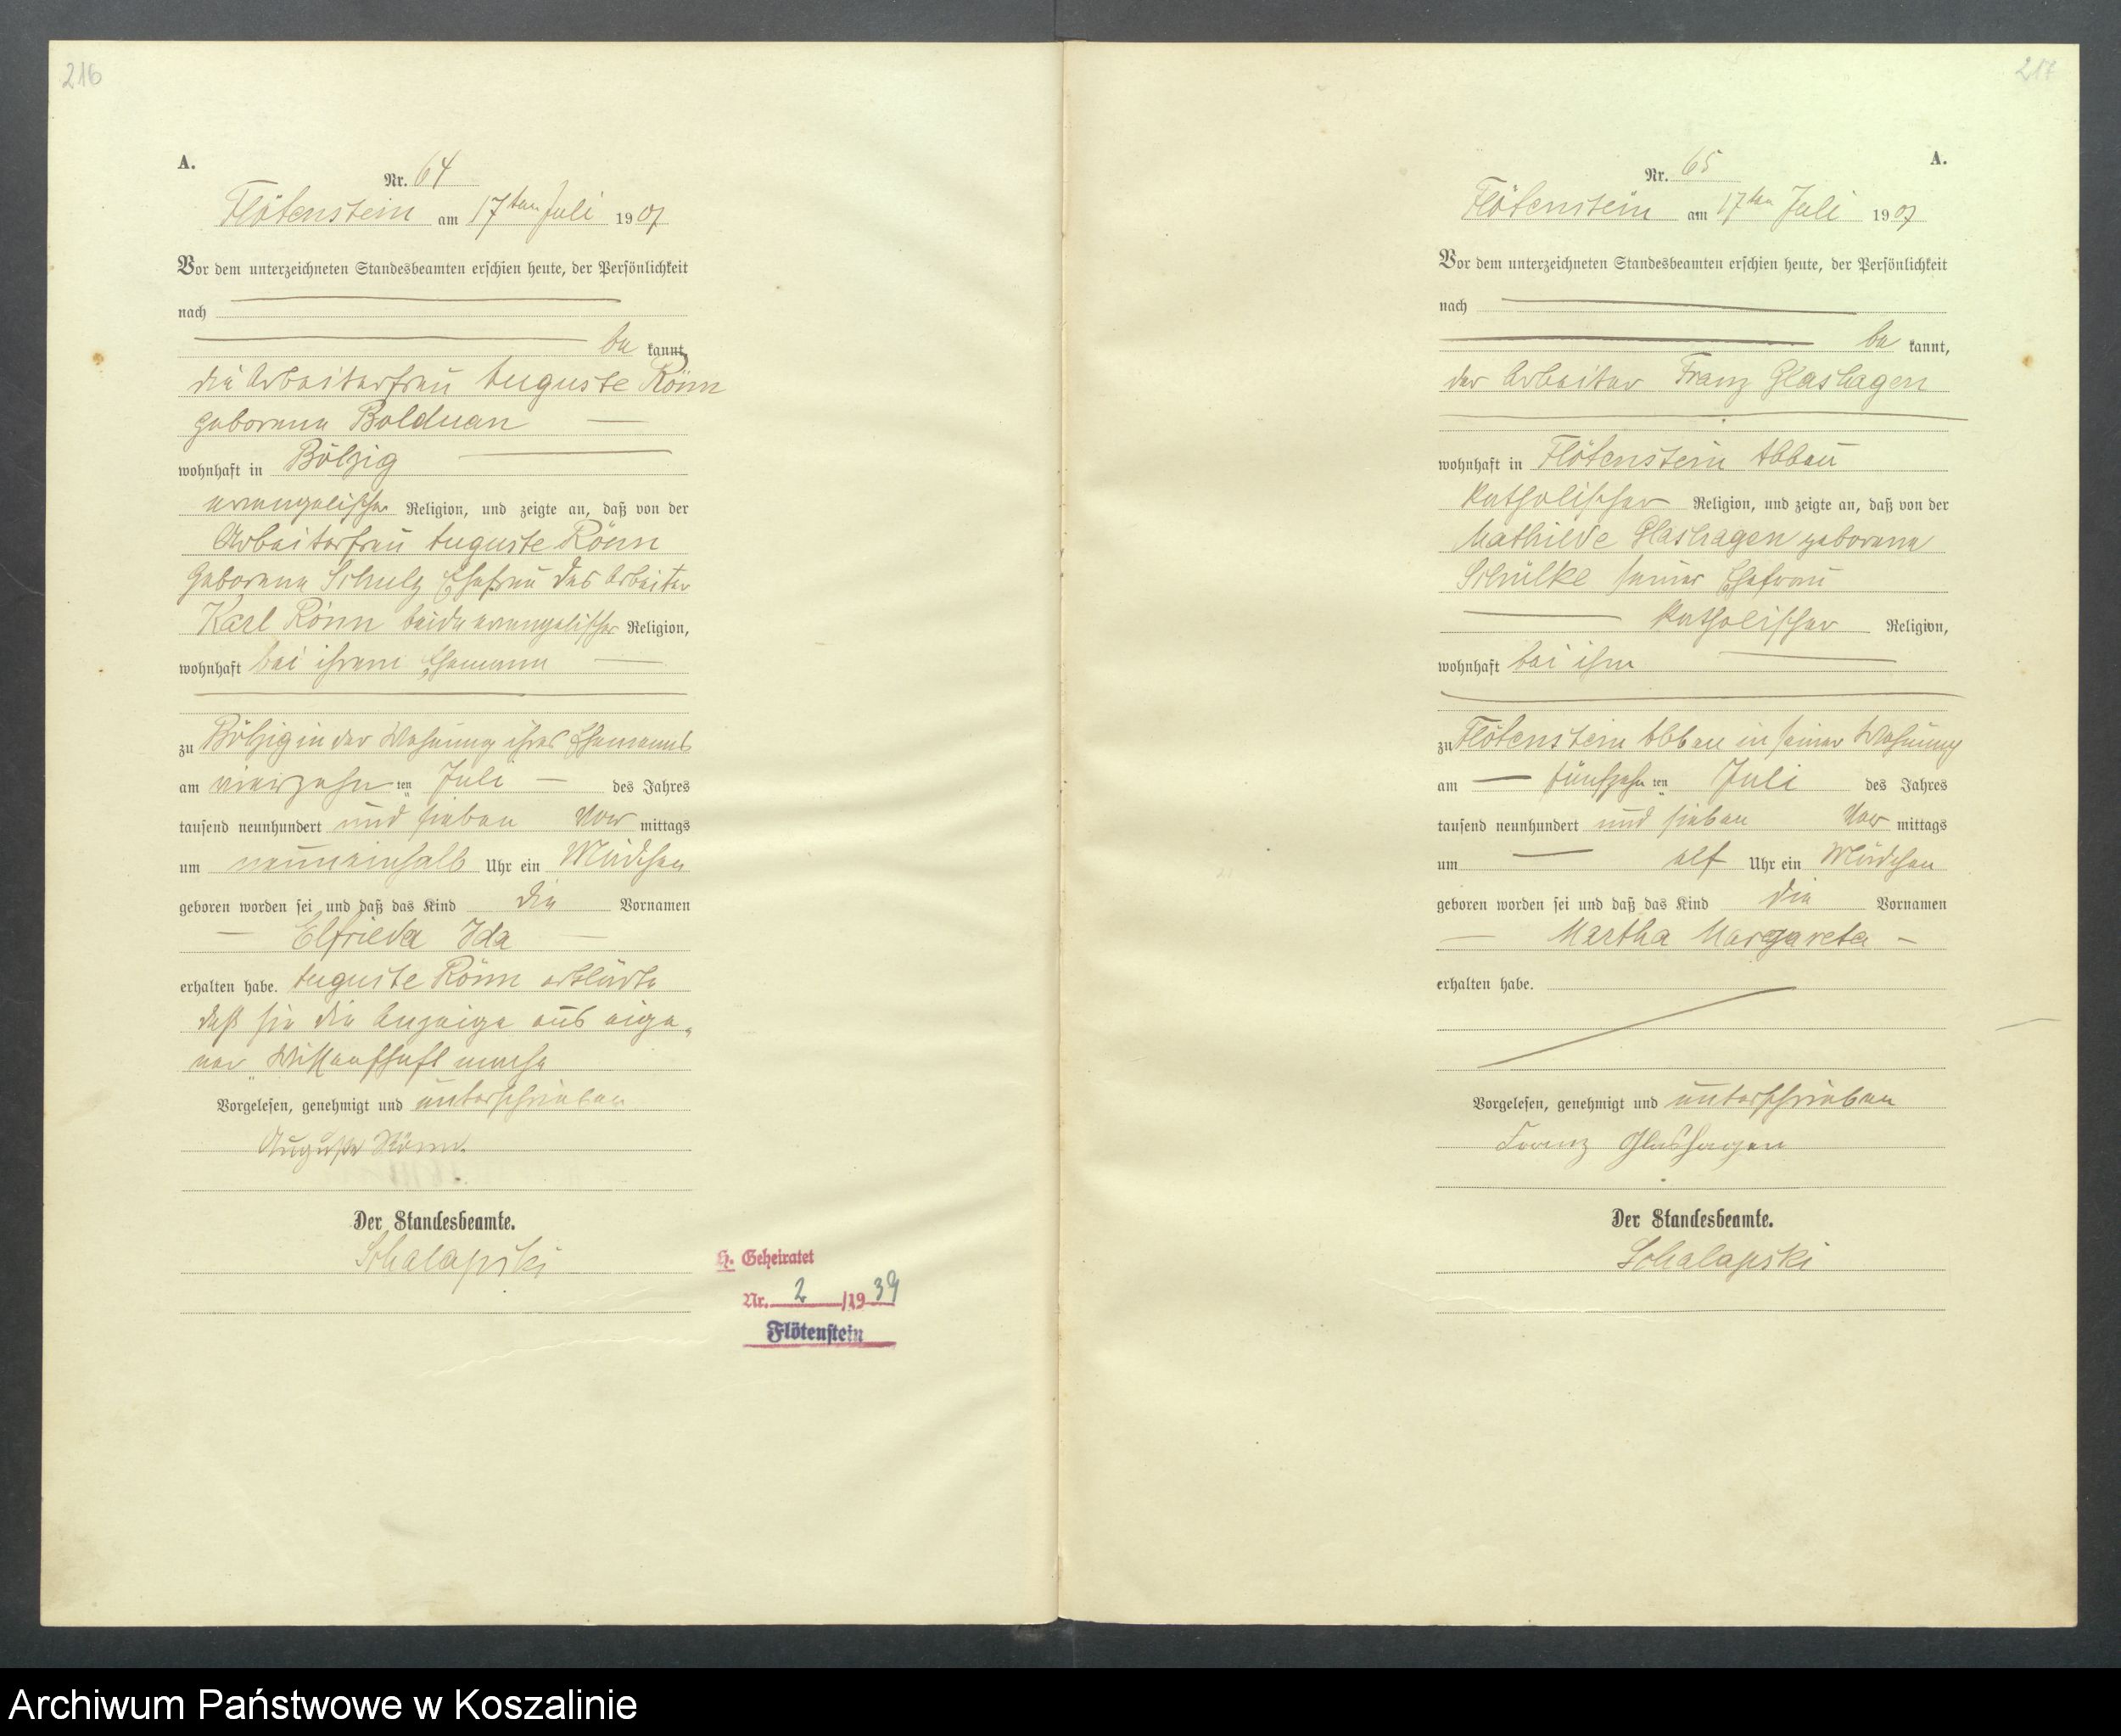 216
A.
Nr. 64
Flötenstein am 17ten Juli 1907
Vor dem unterzeichneten Standesbeamten erschien heute, der Persönlichkeit
nach
be kannt,
die Arbeiterfrau Auguste Rönn
geborene Balduan
wohnhaft in Bölzig
evangelischer Religion, und zeigte an, daß von der
Arbeiterfrau Auguste Rönn
geborene Schulz Ehefrau des Arbeiter
Karl Rönn beide evangelischer Religion,
wohnhaft bei ihrem Ehemann
zu Bölzig in der Wohnung ihres Ehemanns
am vierzehn ten Juli des Jahres
tausend neunhundert und sieben Vor mittags
um neuneinhalb Uhr ein Mädchen
geboren worden sei und daß das Kind die Vornamen
Elfrieda Ida
erhalten habe. Auguste Rönn erklärte
daß sie die Anzeige aus eige„
ner Wissenschaft mache
Vorgelesen, genehmigt und unterschrieben
Auguste Rönn.
Der Standesbeamte.
Schalapski
H. Geheiratet
Nr. 2 /19 39
Flötenstein
217
A.
Nr. 65
Flötenstein am 17ten Juli 1907
Vor dem unterzeichneten Standesbeamten erschien heute, der Persönlichkeit
nach
be kannt,
der Arbeiter Franz Glashagen
wohnhaft in Flötenstein Abbau
katholischer Religion, und zeigte an, daß von der
Mathilde Glashagen geborene
Schülke seiner Ehefrau
katholischer Religion,
wohnhaft bei ihm
zu Flötenstein Abbau in seiner Wohnung
am fünfzehn ten Juli des Jahres
tausend neunhundert und sieben Vor mittags
um elf Uhr ein Mädchen
geboren worden sei und daß das Kind die Vornamen
Martha Margareta
erhalten habe.
Vorgelesen, genehmigt und unterschrieben
Franz Glashagen
Der Standesbeamte.
Schalapski
Archiwum Państwowe w Koszalinie